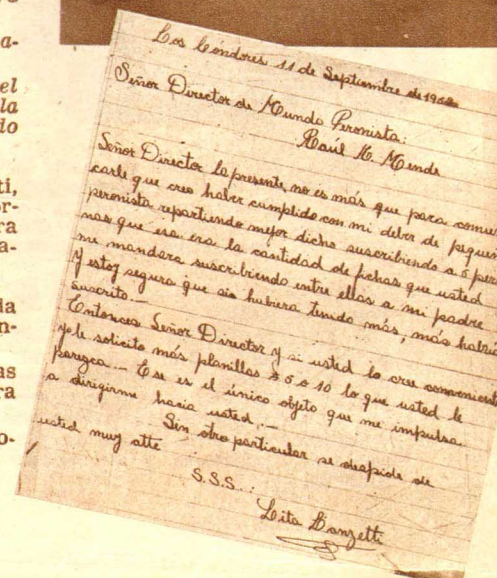 a-
el
la
do
ti,
or-
ra
a-
da
n-
as
ra
o-
Los Condores 11 de Septiembre de 195
Señor Director de Mundo Peronista:
Raúl A. Mende
Señor Director la presente, no es más que para comuni
carle que creo haber cumplido con mi deber de pequeñ
peronista repartiendo mejor dicho suscribiendo a 5 pers
nas que esa era la cantidad de fichas que usted
me mandara suscribiendo entre ellas a mi padre
Y estoy segura que sio hubiera tenido más, más habrí
suscrito.—
Entonces Señor Director y si usted lo cree conveniente
yo le solicito más planillas 5 o 10 lo que usted le
parezca.— Ese es el único objeto que me impulsa
a dirigirme hacia usted.—
Sin otro particular se despide de
usted muy atte
S.S.S.:
Lita Lanzetti